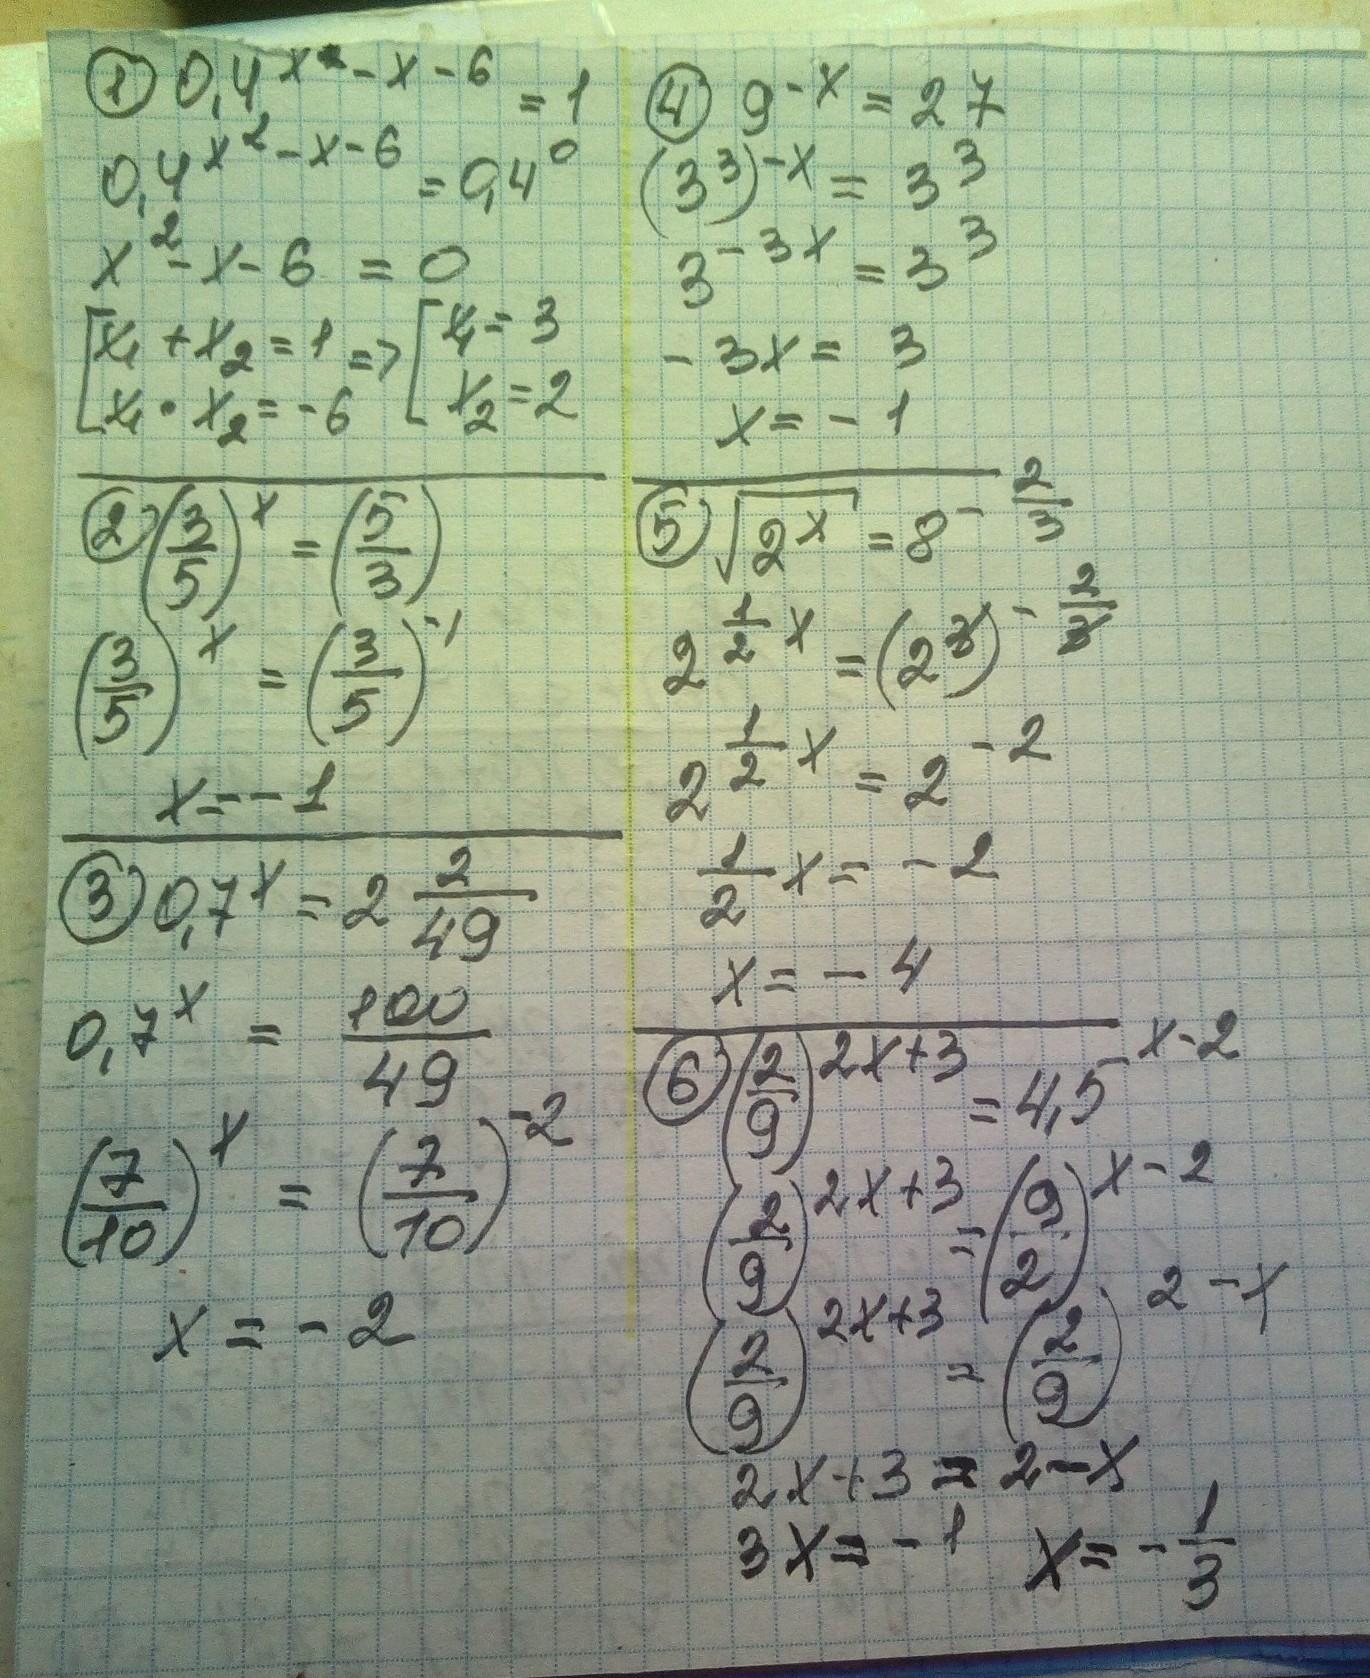 ① 0,4^(x²-x-6) = 1
0,4^(x²-x-6) = 0,4^0
x²-x-6 = 0
[x₁+x₂=1 => [x₁=3
[x₁·x₂=-6 [x₂=2
② (3/5)^x = (5/3)
(3/5)^x = (3/5)^(-1)
x=-1
③ 0,7^x = 2 2/49
0,7^x = 100/49
(7/10)^x = (7/10)^(-2)
x=-2
④ 9^(-x) = 27
(3^3)^(-x) = 3^3
3^(-3x) = 3^3
-3x = 3
x = -1
⑤ √(2^x) = 8^(-2/3)
2^(1/2 x) = (2^3)^(-2/3)
2^(1/2 x) = 2^(-2)
1/2 x = -2
x = -4
⑥ (2/9)^(2x+3) = 4,5^(x-2)
(2/9)^(2x+3) = (9/2)^(x-2)
(2/9)^(2x+3) = (2/9)^(2-x)
2x+3 = 2-x
3x = -1 x = -1/3